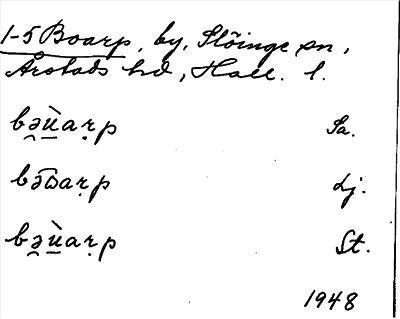 1-5 Boarp, by, Slöinge sn,
Årstads hd, Hall. l.
bə̯ù̱aṛp Sa.
bə̄ɷaṛp Lj.
bə̯ù̱aṛp St.
1948